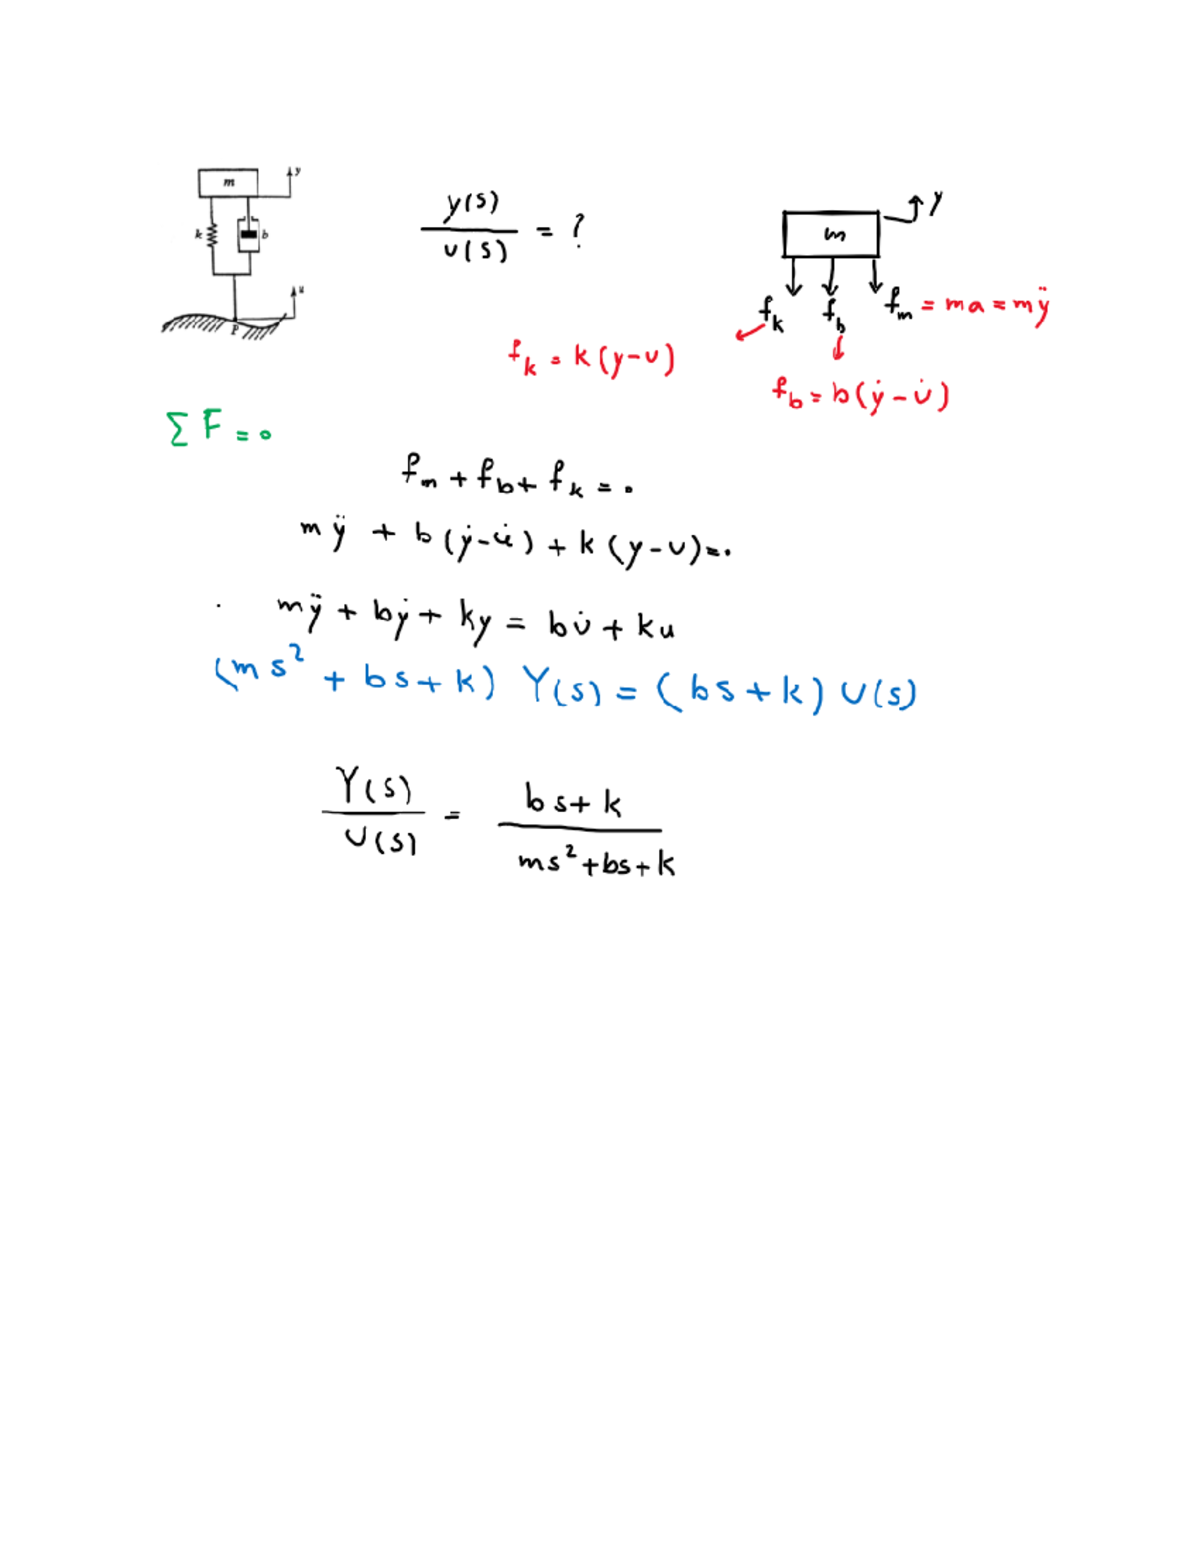 m
y
k
b
u
P
y(s)/u(s) = ?
m
y
f_k
f_b
f_m = ma = mÿ
f_k = k(y-u)
f_b = b(ẏ-u̇)
ΣF=0
f_m + f_b + f_k = 0
mÿ + b(ẏ-u̇) + k(y-u)=0
mÿ + bẏ + ky = bu̇ + ku
(ms² + bs + k) Y(s) = (bs+k) U(s)
Y(s)/U(s) = bs+k/ms²+bs+k